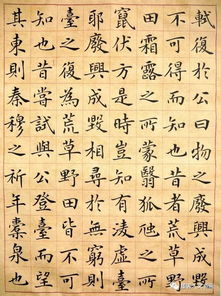 軾復於公曰物之廢興成毀
不可得而知也昔者荒草野
田霜露之所蒙翳狐虺之所
竄伏方是時豈知有凌虛臺
耶廢興成毀相尋於無窮則
臺之復為荒草野田皆不可
知也昔嘗試與公登臺而望
其東則秦穆之祈年橐泉也